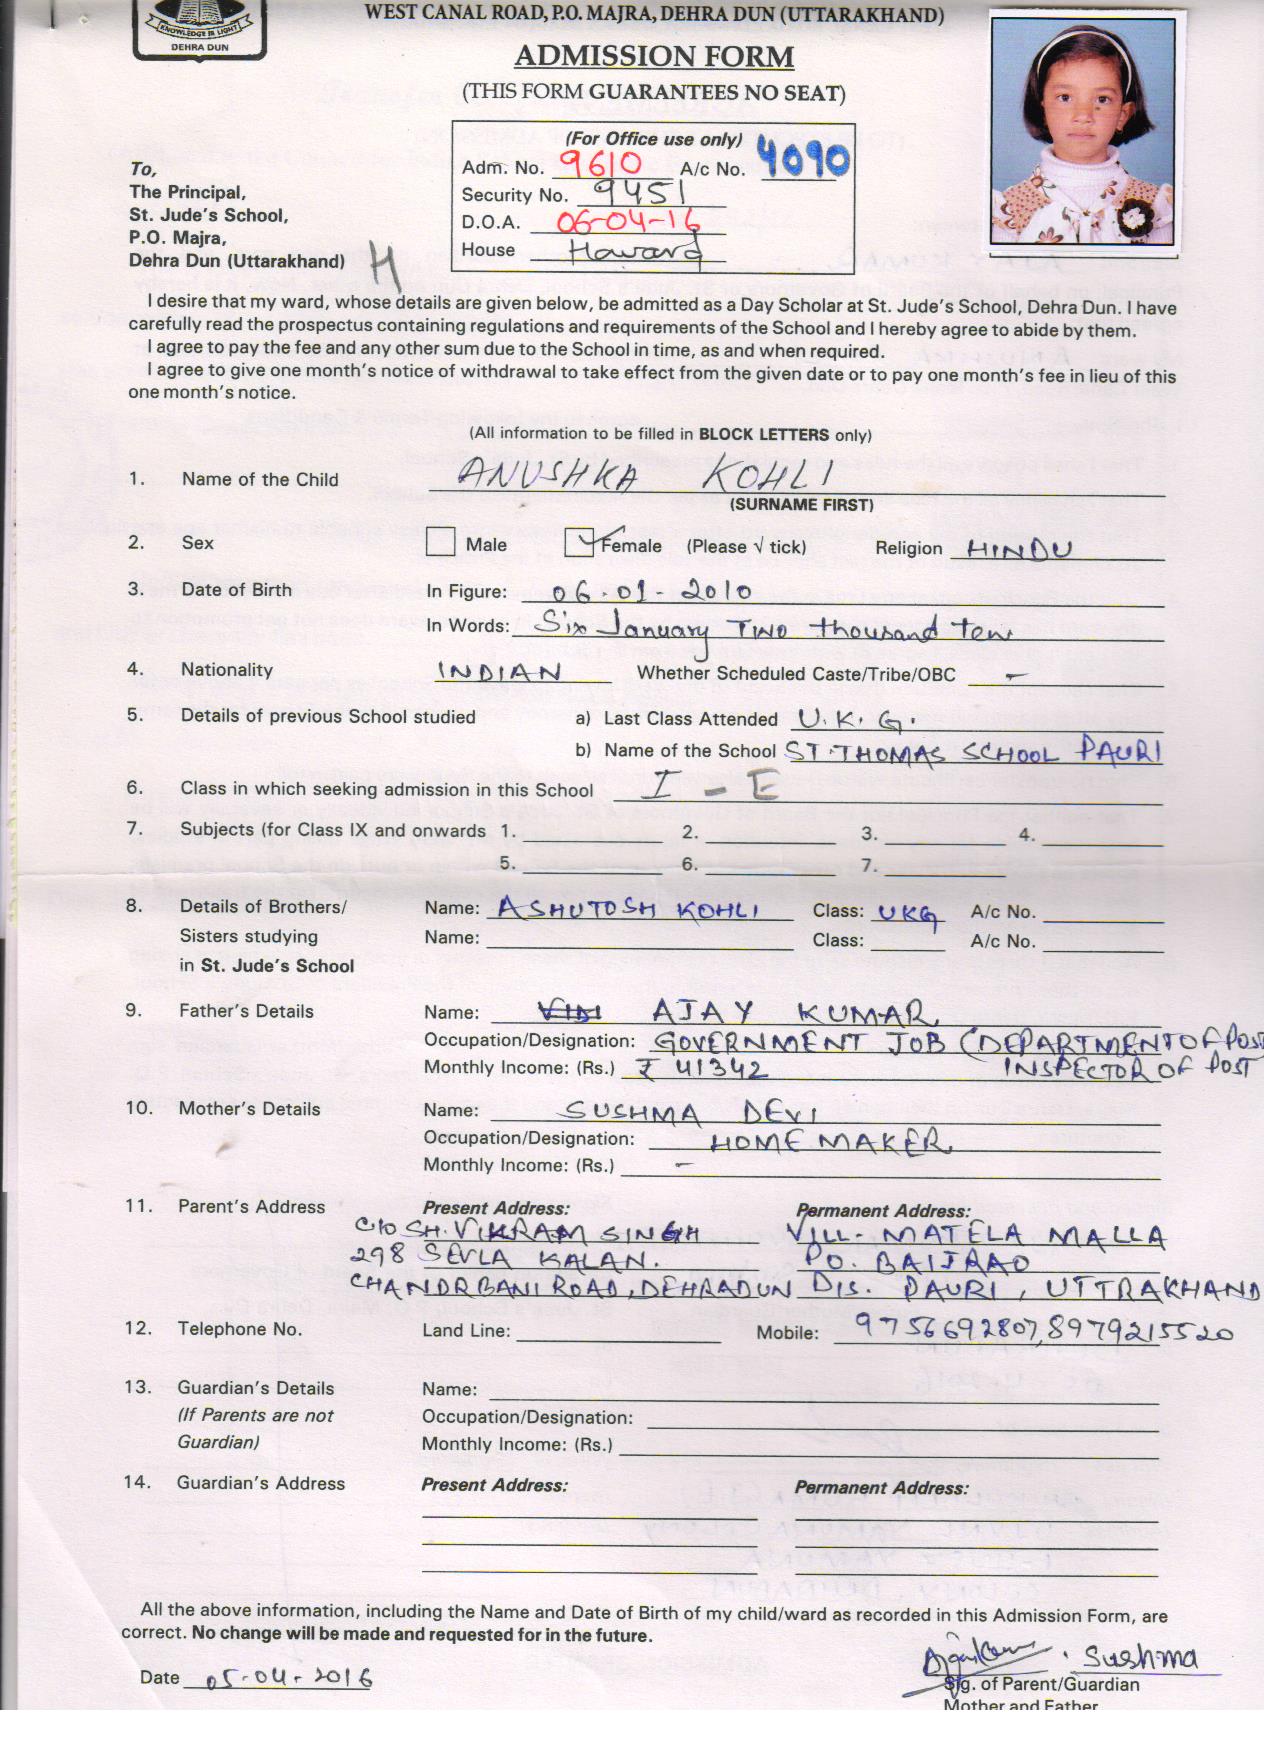 KNOWLEDGE IS LIGHT
DEHRA DUN
WEST CANAL ROAD, P.O. MAJRA, DEHRA DUN (UTTARAKHAND)
ADMISSION FORM
(THIS FORM GUARANTEES NO SEAT)
(For Office use only)
Adm. No. 9610 A/c No. 4090
Security No. 9451
D.O.A. 06-04-16
House Howard
To,
The Principal,
St. Jude's School,
P.O. Majra,
Dehra Dun (Uttarakhand) H
I desire that my ward, whose details are given below, be admitted as a Day Scholar at St. Jude's School, Dehra Dun. I have
carefully read the prospectus containing regulations and requirements of the School and I hereby agree to abide by them.
I agree to pay the fee and any other sum due to the School in time, as and when required.
I agree to give one month's notice of withdrawal to take effect from the given date or to pay one month's fee in lieu of this
one month's notice.
(All information to be filled in BLOCK LETTERS only)
1. Name of the Child ANUSHKA KOHLI
(SURNAME FIRST)
2. Sex Male Female (Please √ tick) Religion HINDU
3. Date of Birth In Figure: 06-01-2010
In Words: Six January TWO thousand ten
4. Nationality INDIAN Whether Scheduled Caste/Tribe/OBC -
5. Details of previous School studied a) Last Class Attended U.K.G.
b) Name of the School ST.THOMAS SCHOOL PAURI
6. Class in which seeking admission in this School I - E
7. Subjects (for Class IX and onwards 1. 2. 3. 4.
5. 6. 7.
8. Details of Brothers/ Name: ASHUTOSH KOHLI Class: UKG A/c No.
Sisters studying Name: Class: A/c No.
in St. Jude's School
9. Father's Details Name: AJAY KUMAR
Occupation/Designation: GOVERNMENT JOB (DEPARTMENT OF POST
Monthly Income: (Rs.) ₹ 41342 INSPECTOR OF POST
10. Mother's Details Name: SUSHMA DEVI
Occupation/Designation: HOME MAKER
Monthly Income: (Rs.) -
11. Parent's Address Present Address: Permanent Address:
C/O SH. VIKRAM SINGH VILL- MATELA MALLA
298 SEVLA KALAN. PO. BAIJRAO
CHANDRBANI ROAD, DEHRADUN DIS. PAURI, UTTRAKHAND
12. Telephone No. Land Line: Mobile: 9756692807, 8979215520
13. Guardian's Details Name:
(If Parents are not Occupation/Designation:
Guardian) Monthly Income: (Rs.)
14. Guardian's Address Present Address: Permanent Address:
All the above information, including the Name and Date of Birth of my child/ward as recorded in this Admission Form, are
correct. No change will be made and requested for in the future.
Date 05-04-2016 Sushma
Sig. of Parent/Guardian
Mother and Father